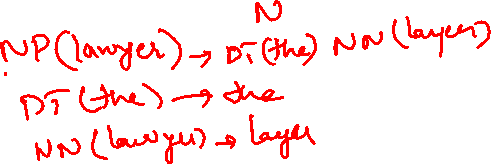 N
NP(lawyer) → DT(the) NN(layer)
DT(the) → the
NN(lawyer) → layer